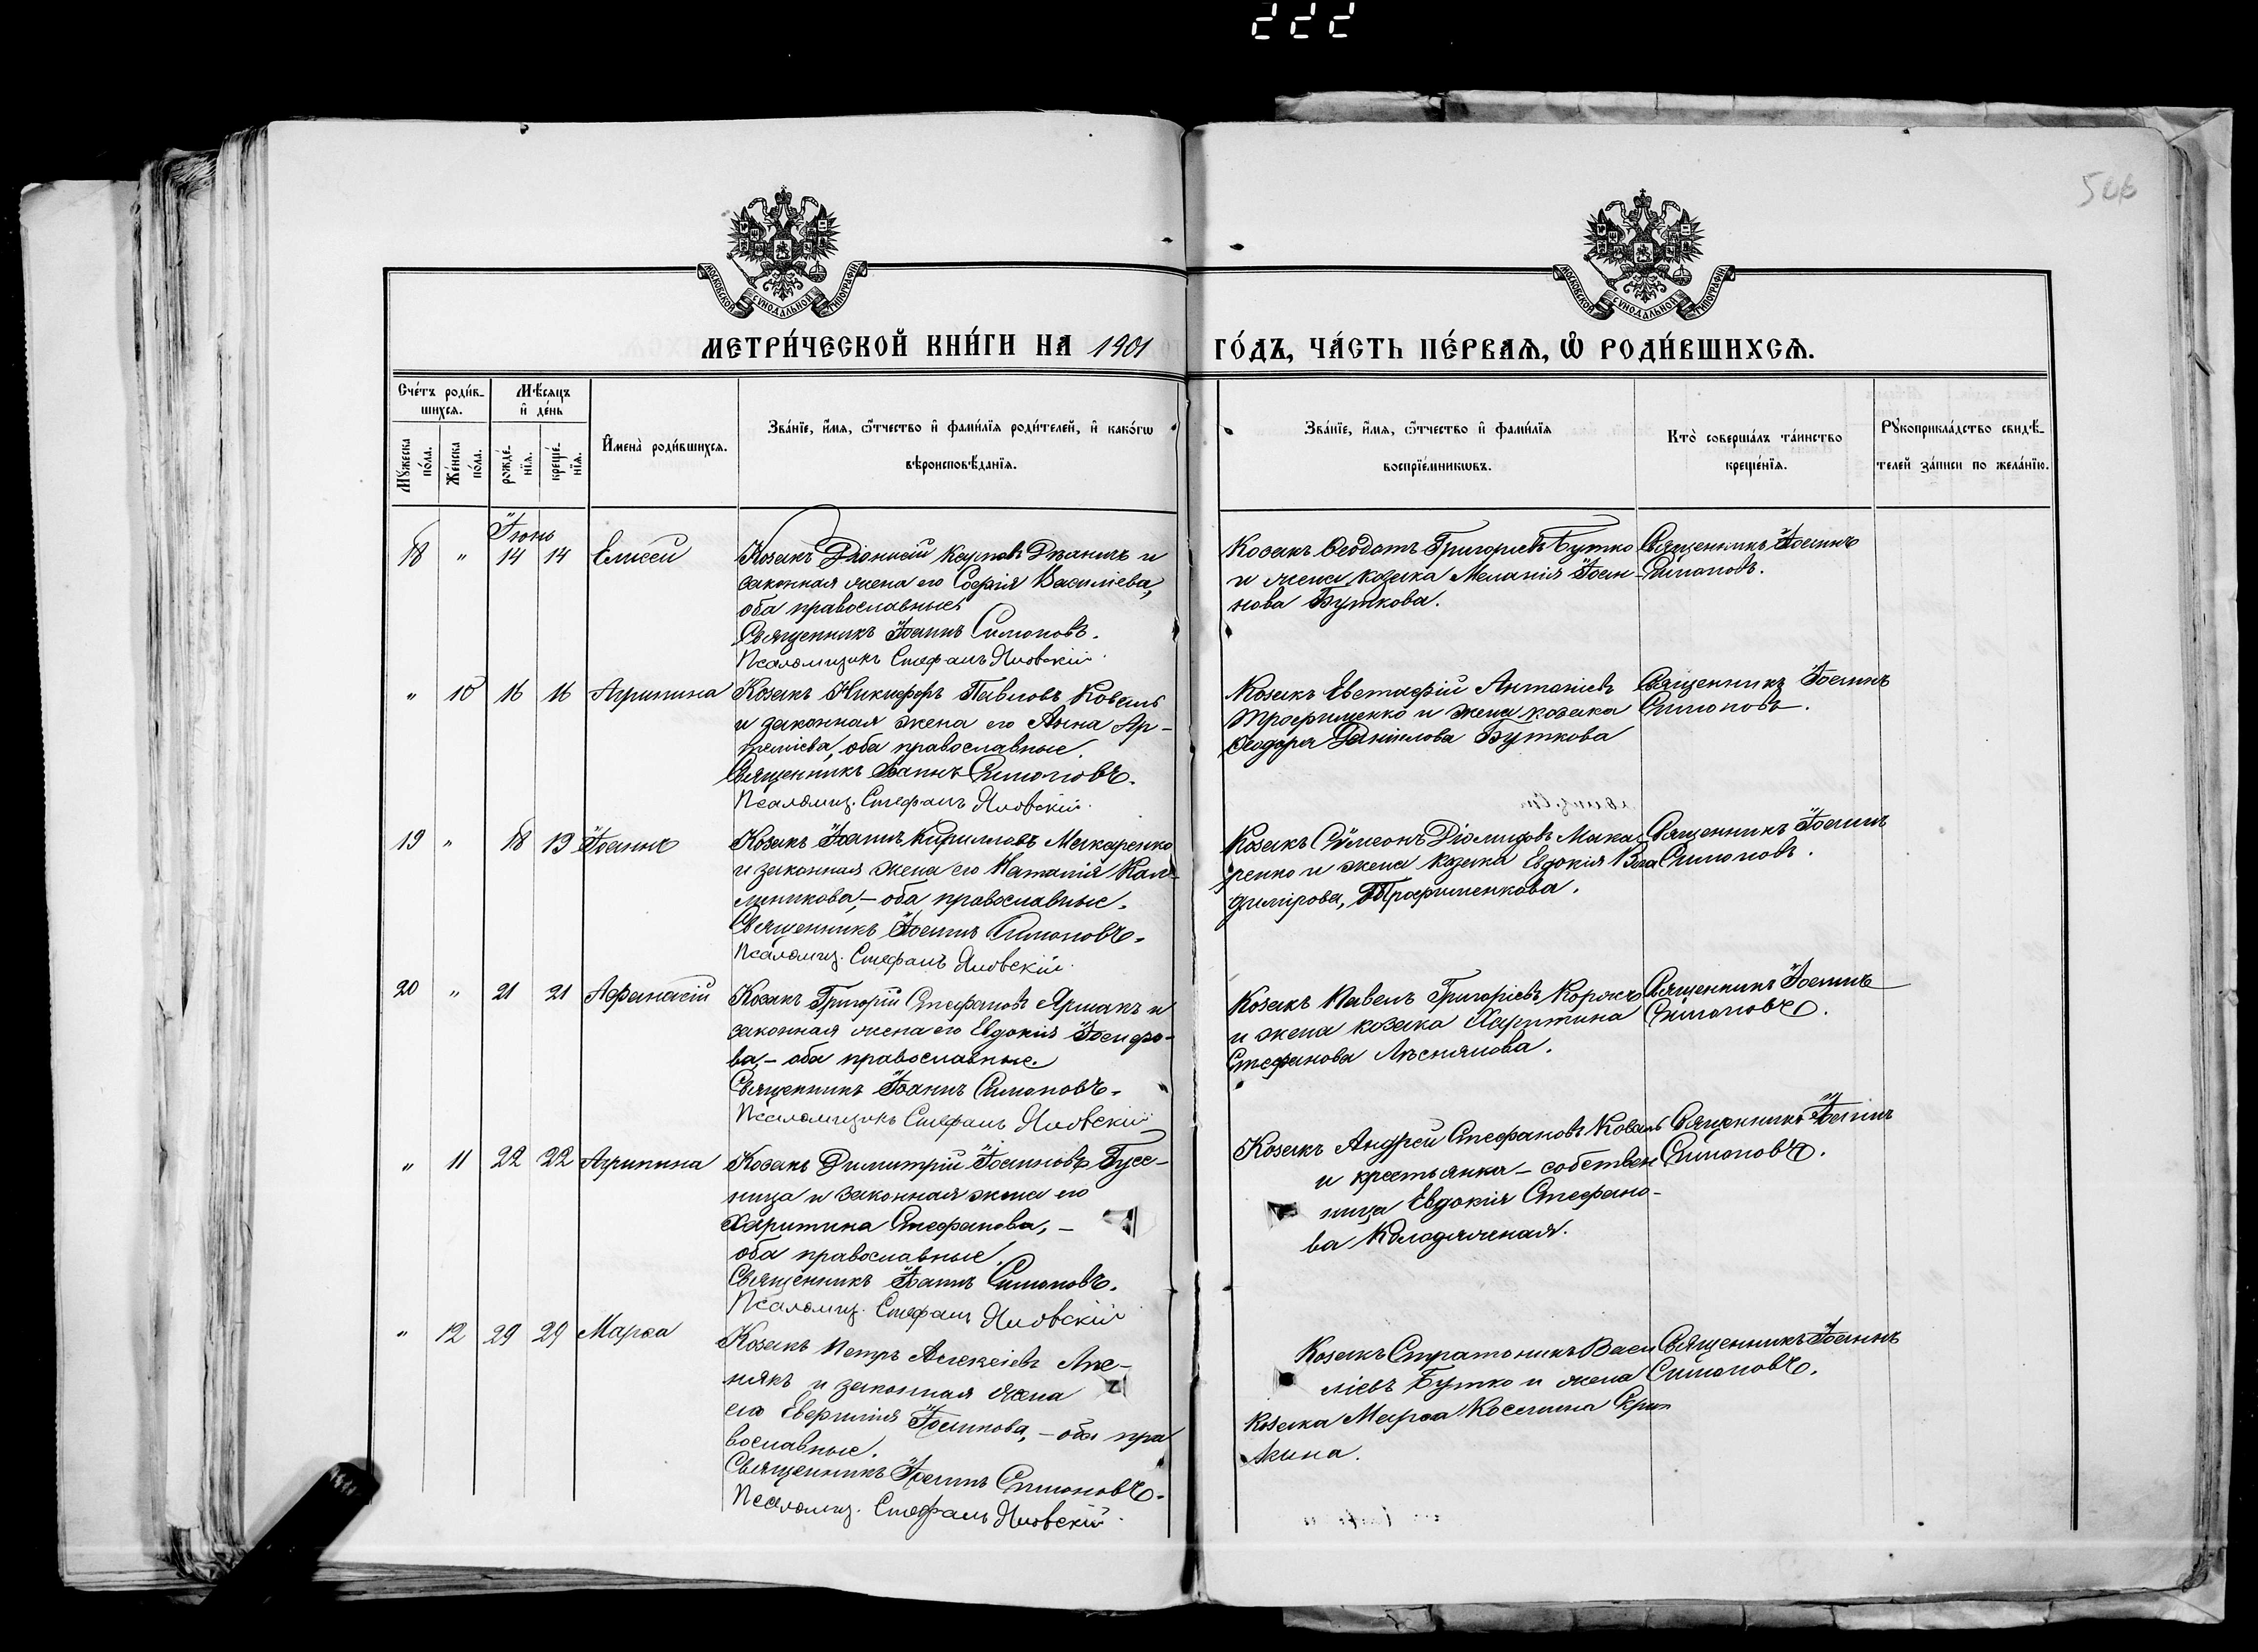 222
546
МОСКОВСКОЙ СѴНОДАЛЬНОЙ ТИПОГРАФІИ
МОСКОВСКОЙ СѴНОДАЛЬНОЙ ТИПОГРАФІИ
МЕТРИ́ЧЕСКОЙ КНИ́ГИ НА 1901 ГО́ДЪ, ЧА́СТЬ ПЕ́РВАѦ, Ѽ РОДИ́ВШИХСѦ.
Сче́тъ роди́в-
шихсѧ.
Мѣ́сѧцъ
и҆ де́нь
Мꙋ́жеска по́ла.
Же́нска по́ла.
рожде́-
нїѧ.
креще́-
нїѧ.
И҆мена̀ роди́вшихсѧ.
Зва́нїе, и҆́мѧ, ѻ҆́тчество и҆ фами́лїѧ роди́телей, и҆ како́гѡ
вѣроисповѣ́данїѧ.
Зва́нїе, и҆́мѧ, ѻ҆́тчество и҆ фами́лїѧ
воспрїе́мникѡвъ.
Кто̀ соверша́лъ та́инство
креще́нїѧ.
Рꙋкоприкла́дство свидѣ́-
телей за́писи по жела́нїю.
Іюнь
18 " 14 14 Елисей
Козакъ Діонисій Карповъ Деканичъ и
законная жена его Софія Василіева,
оба православные.
Священникъ Іоаннъ Симоновъ.
Псаломщикъ Стефанъ Яновскій.
Козакъ Ѳеодотъ Григоріевъ Бутко
и жена козака Меланія Іоан-
нова Буткова.
Священникъ Іоаннъ
Симоновъ.
" 10 16 16 Агрипина
Козакъ Никифоръ Павловъ Коваль
и законная жена его Анна Ар-
теміева, оба православные.
Священникъ Іоаннъ Симоновъ.
Псаломщ. Стефанъ Яновскій.
Козакъ Евстафій Антоніевъ
Трофименко и жена козака
Ѳеодора Даніилова Буткова
Священникъ Іоаннъ
Симоновъ.
19 " 18 19 Іоаннъ
Козакъ Іоаннъ Кирилловъ Макаренко
и законная жена его Наталія Кали-
никова, – оба православные.
Священникъ Іоаннъ Симоновъ.
Псаломщ. Стефанъ Яновскій.
Козакъ Сѵмеонъ Діомидовъ Мака-
ренко и жена козака Евдокія Вла
димірова, Трофименкова.
Священникъ Іоаннъ
Симоновъ.
20 " 21 21 Афанасій
Козакъ Григорій Стефановъ Ярмакъ и
законная жена его Евдокія Іосифо-
ва, – оба православные.
Священникъ Іоаннъ Симоновъ.
Псаломщикъ Стефанъ Яновскій
Козакъ Павелъ Григоріевъ Коржъ
и жена козака Харитина
Стефанова Лѣснякова.
Священникъ Іоаннъ
Симоновъ.
" 11 22 22 Агрипина
Козакъ Димитрій Іоанновъ Гусе-
ница и законная жена его
Харитина Стефанова, –
оба православные.
Священникъ Іоаннъ Симоновъ.
Псаломщ. Стефанъ Яновскій
Козакъ Андрей Стефановъ Коваль
и крестьянка – собствен
ница Евдокія Стефано-
ва Колодяжная.
Священникъ Іоаннъ
Симоновъ.
" 12 29 29 Марѳа
Козакъ Петръ Алексіевъ
някъ и законная жена
его Евфимія Іоаннова, – оба пра
вославные.
Священникъ Іоаннъ Симоновъ.
Псаломщ. Стефанъ Яновскій.
Козакъ Стратоникъ Васи
ліевъ Бутко и жена
козака Марѳа Космина Скри
кина.
Священникъ Іоаннъ
Симоновъ.